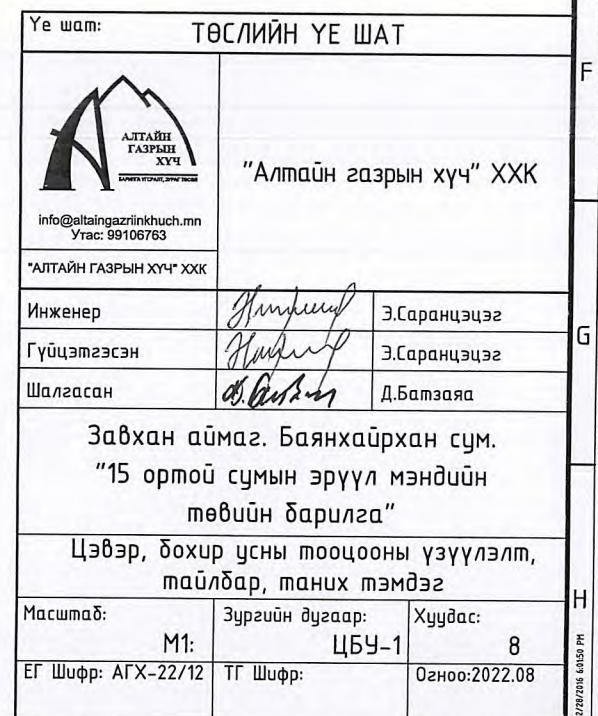 Үе шат:
ТӨСЛИЙН ҮЕ ШАТ
F
АЛТАЙН
ГАЗРЫН
ХҮЧ
БАРИЛГА УГСРАЛТ, ЗУРАГ ТӨСӨВ
info@altaingazriinkhuch.mn
Утас: 99106763
"АЛТАЙН ГАЗРЫН ХҮЧ" ХХК
"Алтайн газрын хүч" ХХК
Инженер
Э.Саранцэцэг
G
Гүйцэтгэсэн
Э.Саранцэцэг
Шалгасан
Д.Батзаяа
Завхан аймаг. Баянхайрхан сум.
"15 ортой сумын эрүүл мэндийн
төвийн барилга"
Цэвэр, бохир усны тооцооны үзүүлэлт,
тайлбар, таних тэмдэг
H
Масштаб:
М1:
Зургийн дугаар:
ЦБУ-1
Хуудас:
8
ЕГ Шифр: АГХ-22/12
ТГ Шифр:
Огноо:2022.08
2/28/2016 6:01:50 PM